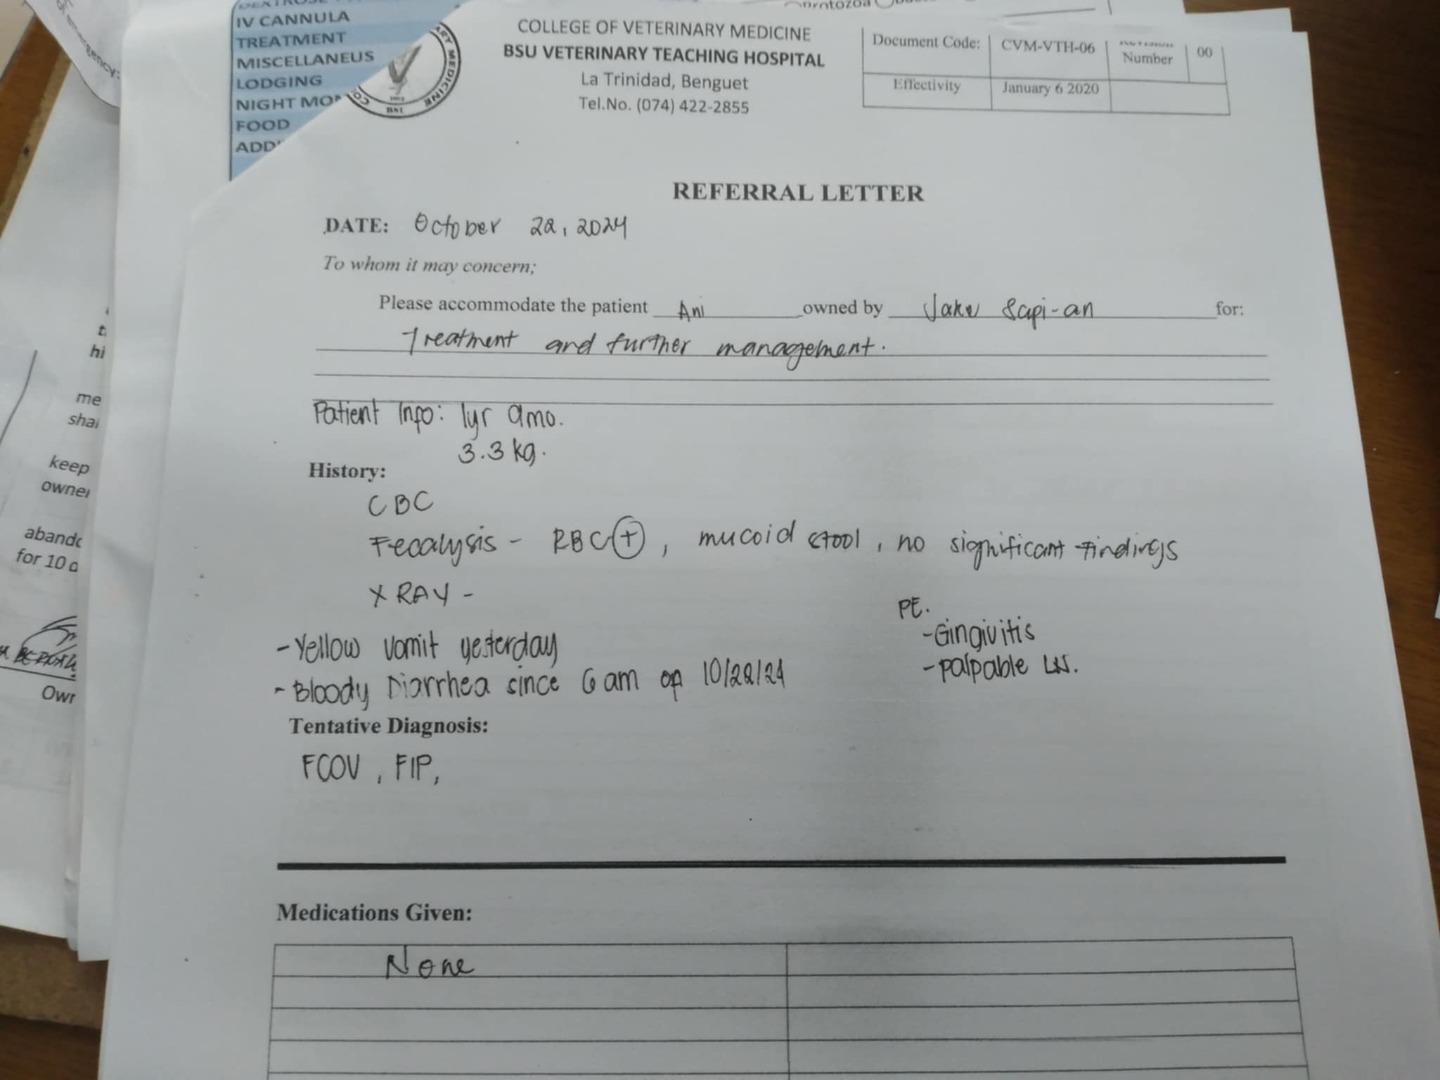 IV CANNULA
TREATMENT
MISCELLANEUS
LODGING
NIGHT MO
FOOD
ADD
COLLEGE OF VETERINARY MEDICINE
BSU VETERINARY TEACHING HOSPITAL
La Trinidad, Benguet
Tel.No. (074) 422-2855
Document Code: CVM-VTH-06 Number 00
Effectivity January 6 2020
REFERRAL LETTER
DATE: October 22, 2024
To whom it may concern;
Please accommodate the patient Ani owned by Jake Sapi-an for:
Treatment and further management.
Patient Info: 1yr 9mo.
3.3 kg.
History:
CBC
Fecalysis - RBC (+), mucoid stool, no significant findings
X RAY -
PE.
- Gingivitis
- palpable LN.
- Yellow vomit yesterday
- Bloody Diarrhea since 6 am of 10/22/24
Tentative Diagnosis:
FCOV, FIP,
Medications Given:
None
hi
me
shal
keep
owner
abando
for 10 d
Owr